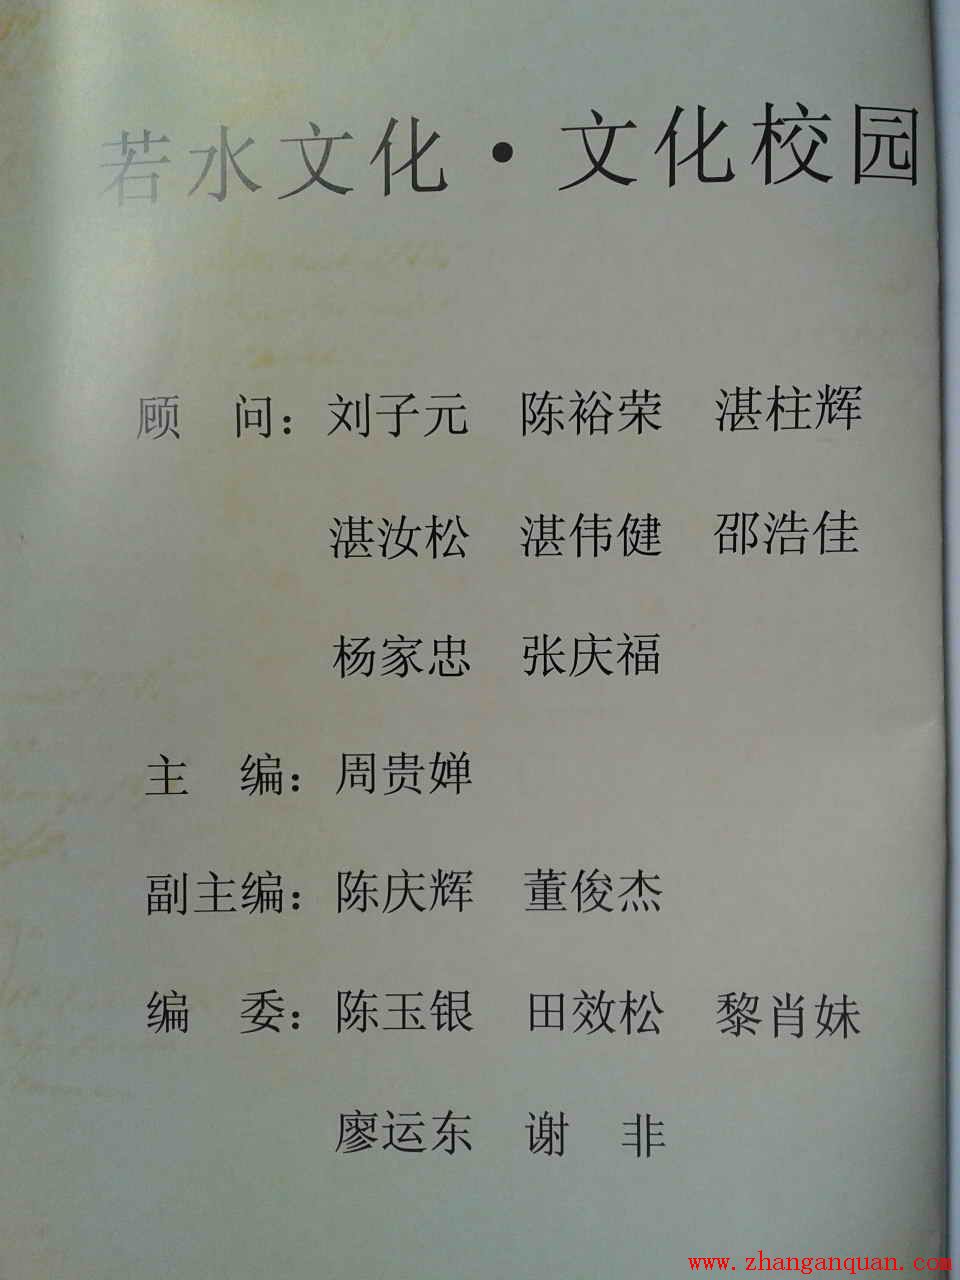 若水文化·文化校园
顾　问：刘子元　陈裕荣　湛柱辉
湛汝松　湛伟健　邵浩佳
杨家忠　张庆福
主　编：周贵婵
副主编：陈庆辉　董俊杰
编　委：陈玉银　田效松　黎肖妹
廖运东　谢　非
www.zhanganquan.com